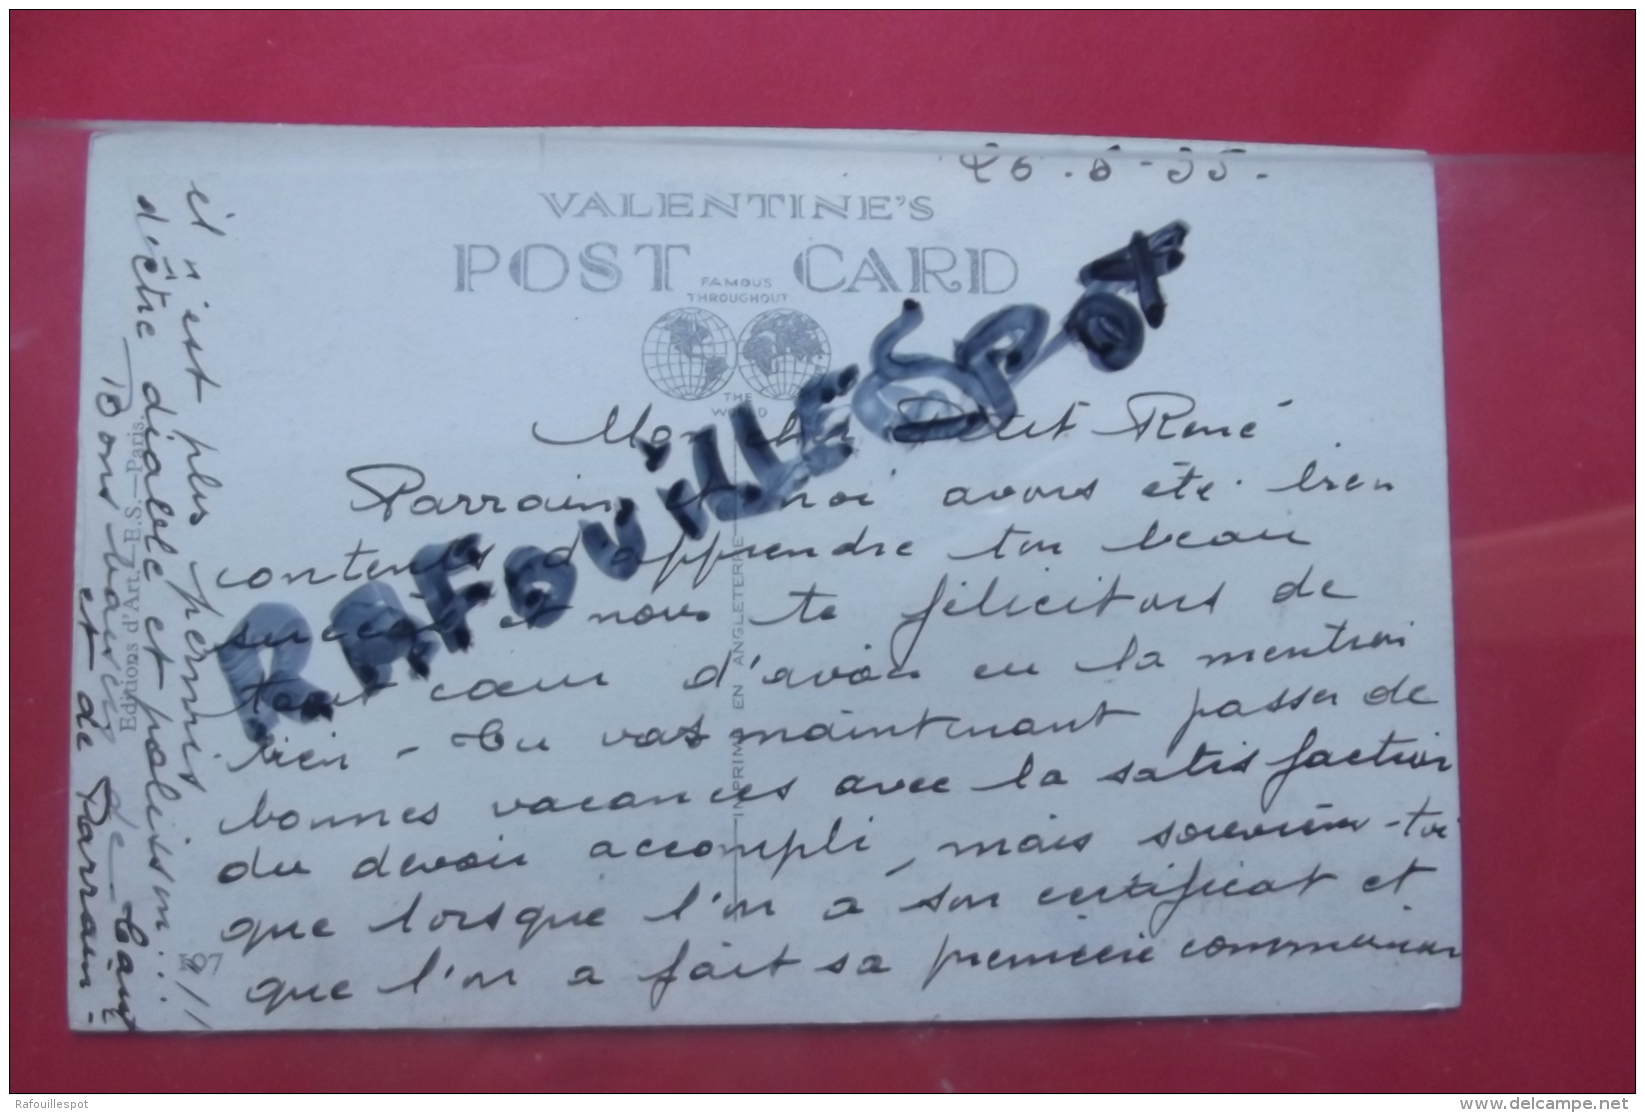 26.6-35.
VALENTINE'S
POST CARD
FAMOUS
THROUGHOUT
THE
WORLD
RAFOUILLESPOT
Mon cher Petit René
Parrain et moi avons été bien
contents d'apprendre ton beau
succès et nous te félicitons de
tout cœur d'avoir eu la mention
bien - Tu vas maintenant passer de
bonnes vacances avec la satisfaction
du devoir accompli, mais souviens-toi
que lorsque l'on a son certificat et
que l'on a fait sa première communion
il n'est plus permis
d'être diable et polisson...!!
Bons baisers de Tante
et de Parrain -
IMPRIMÉ EN ANGLETERRE
Editions d'Art, E.S.—Paris.
97
Rafouillespot
www.delcampe.net